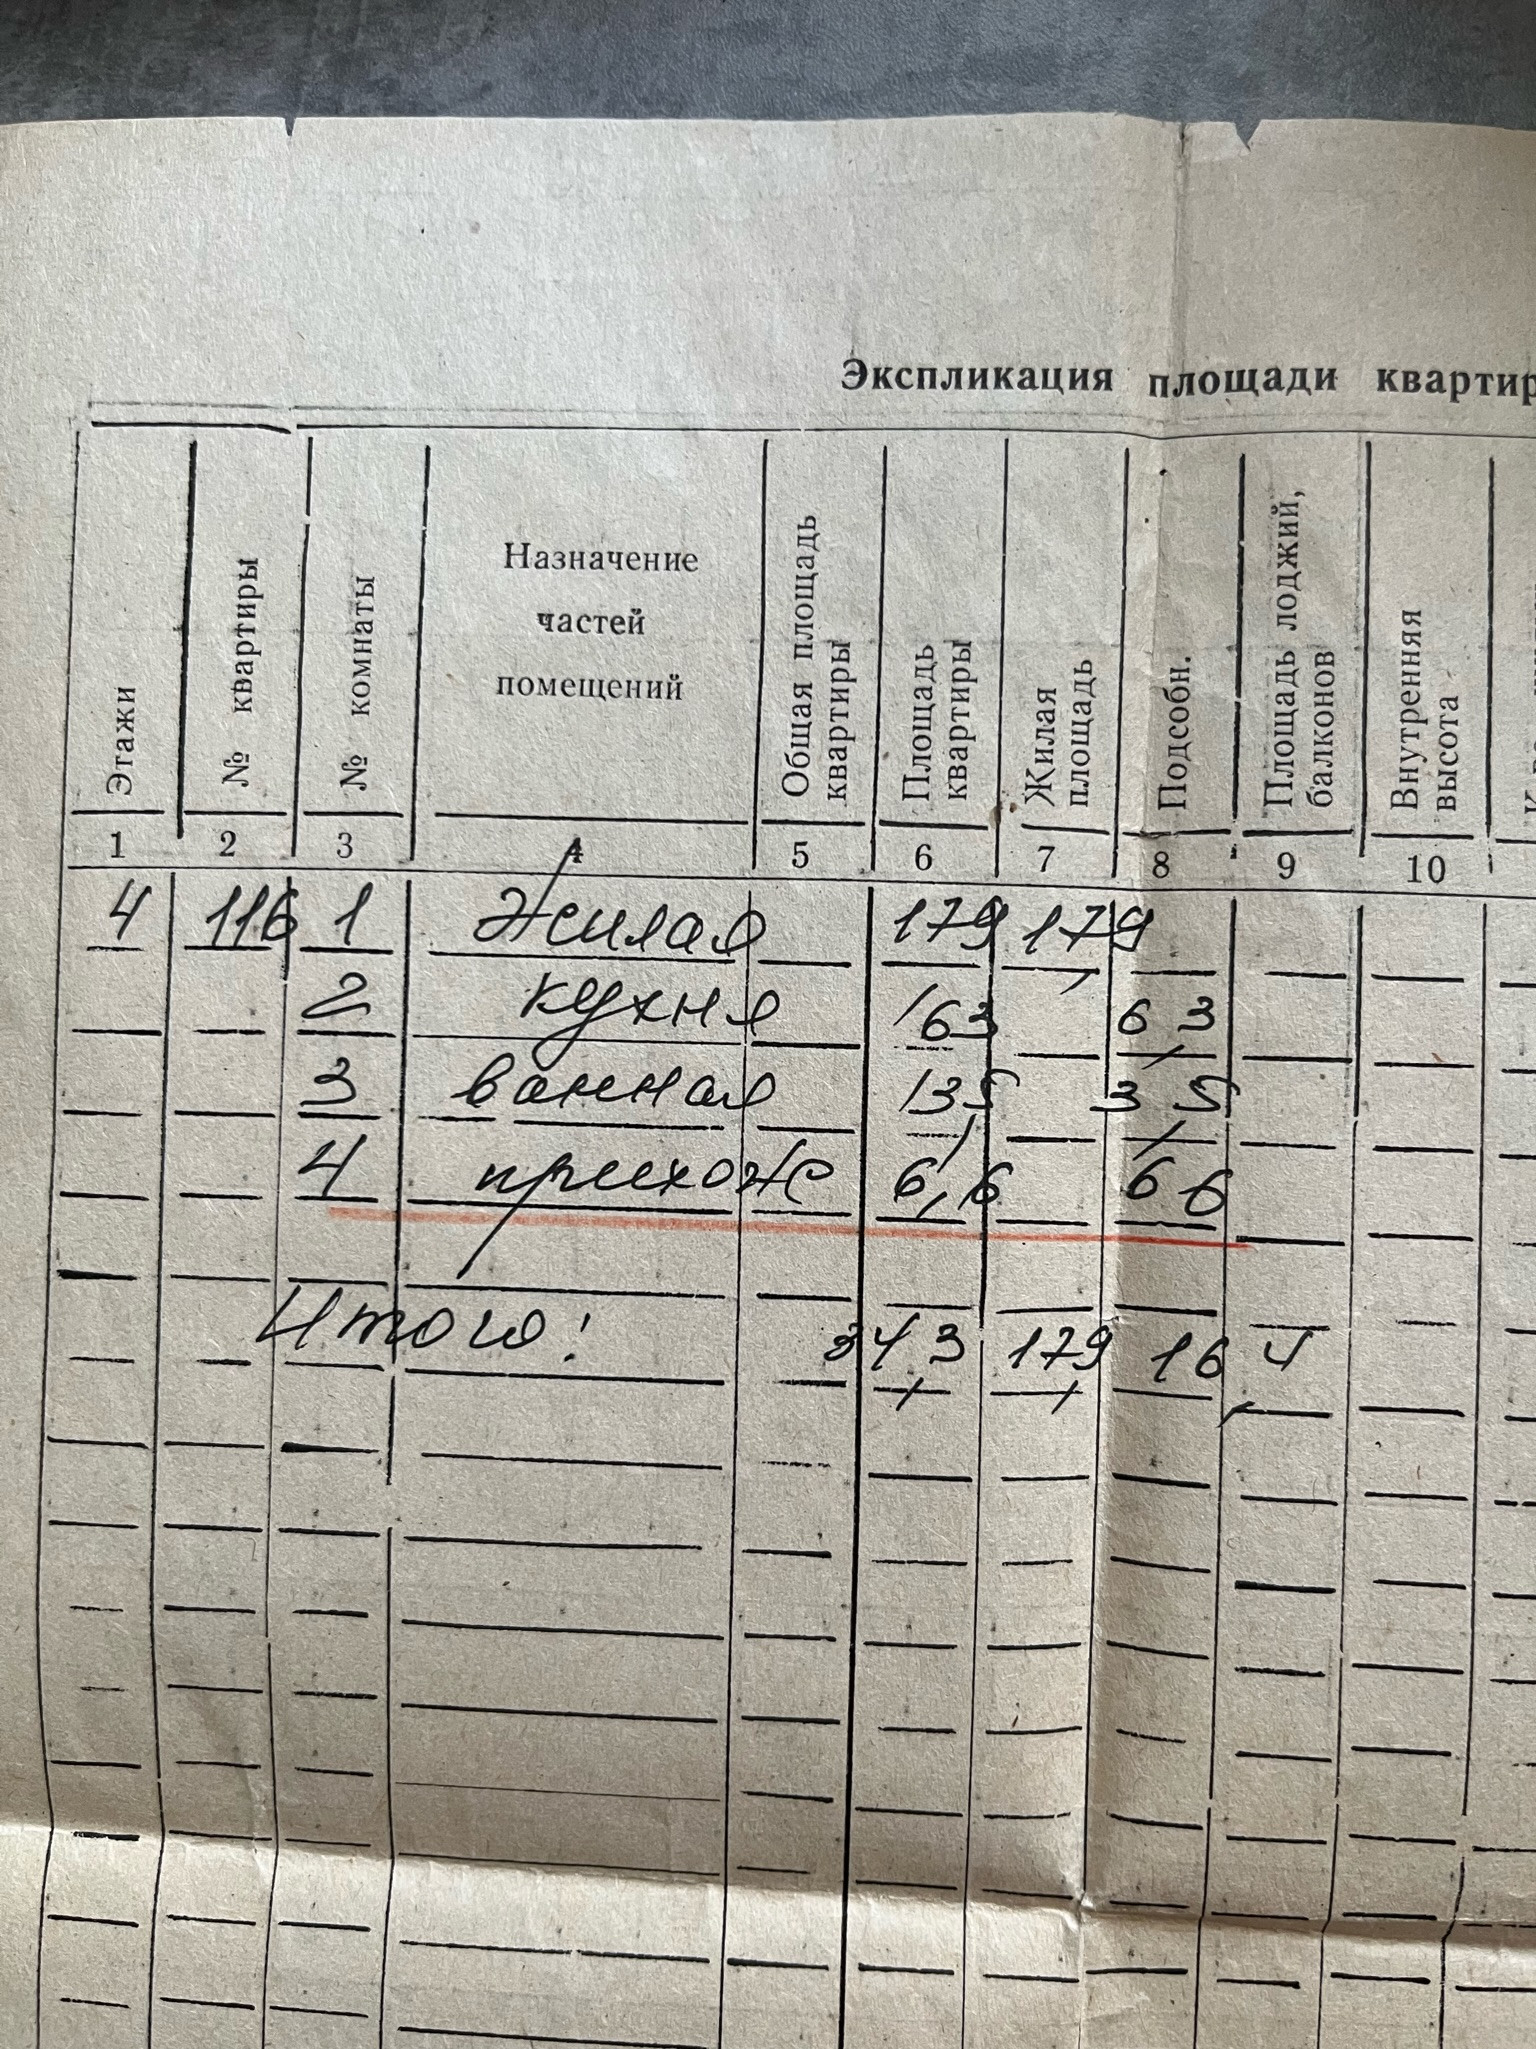 Экспликация площади квартир
Этажи № квартиры № комнаты Назначение частей помещений Общая площадь квартиры Площадь квартиры Жилая площадь Подсобн. Площадь лоджий, балконов Внутренняя высота
1 2 3 4 5 6 7 8 9 10
4 116 1 Жилая 179 17,9
2 кухня 163 6,3
3 ванная 13,5 3,5
4 прихож 6,6 66
Итого: 34,3 17,9 16,4